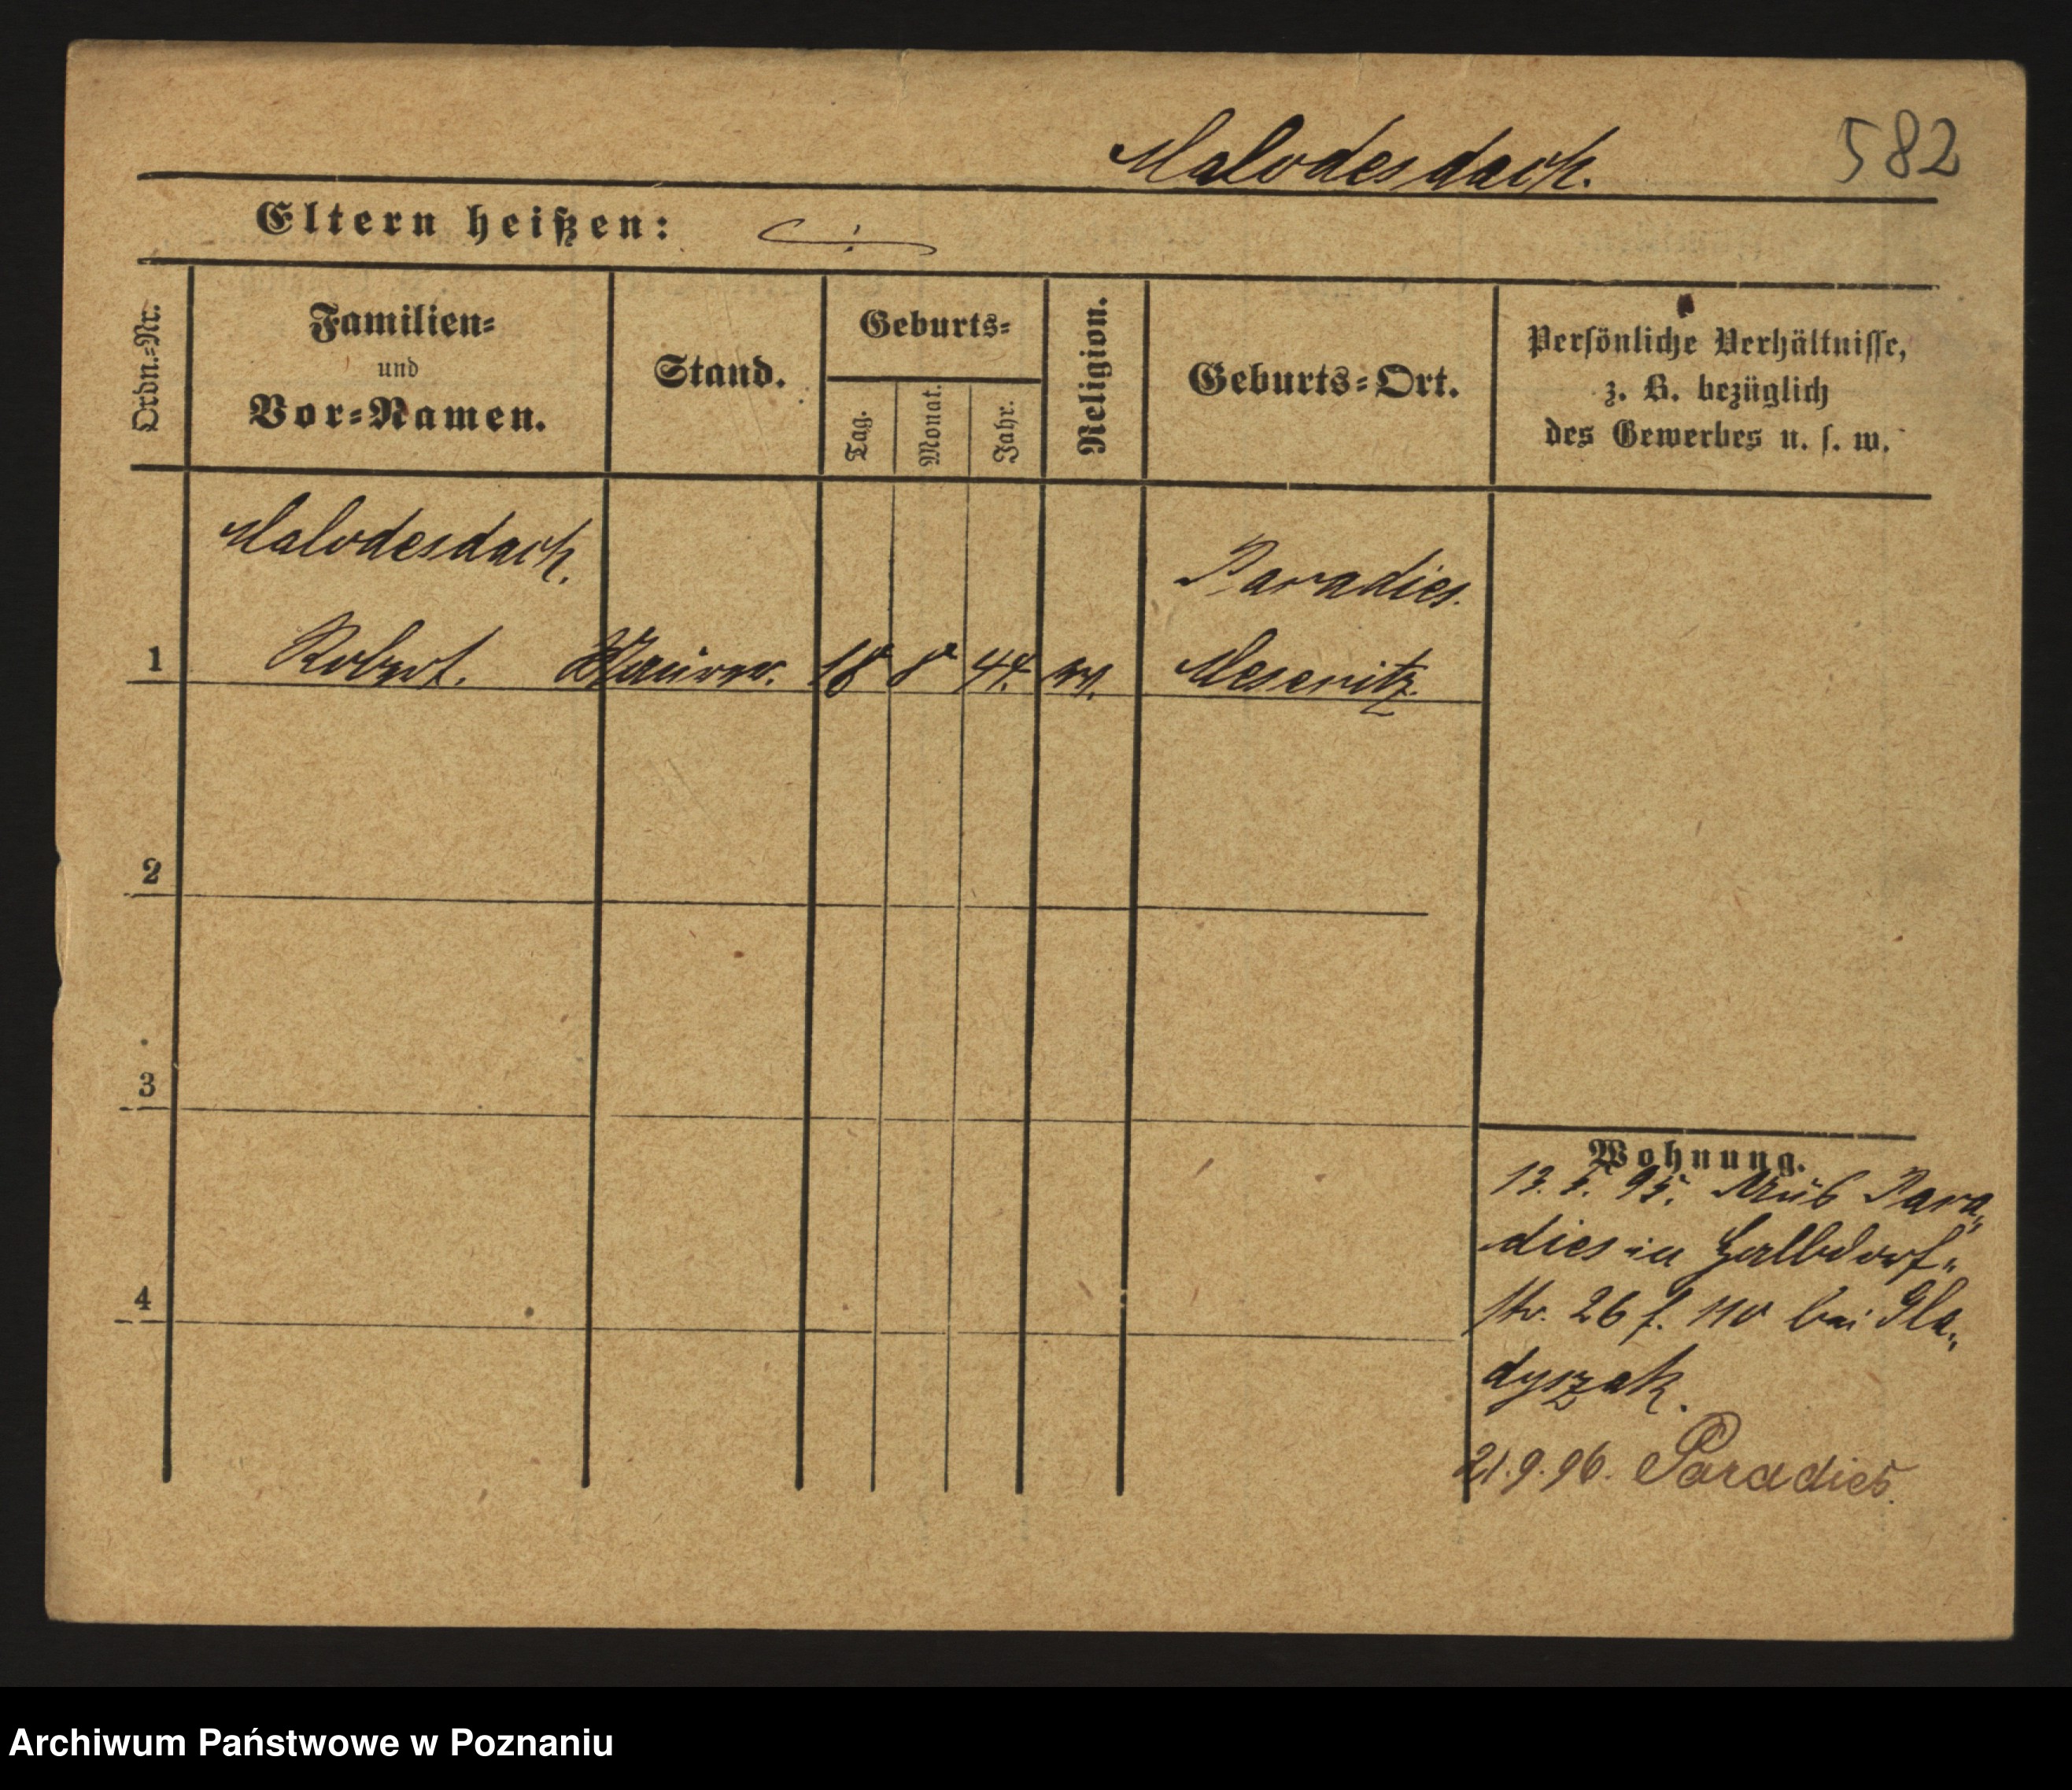 Malodesdach.
582
Eltern heißen:
Ordn.=Nr.
Familien=
und
Vor=Namen.
Stand.
Geburts=
Tag.
Monat.
Jahr.
Religion.
Geburts=Ort.
Persönliche Verhältnisse,
z. B. bezüglich
des Gewerbes u. s. w.
Malodesdach.
Robert.
Paradies.
1
Maurer. 18 8 44.
Meseritz.
2
3
4
Wohnung.
Aus Para„
dies in Halbdorf„
str. 26 f. bei Gla„
dyszak.
21.9.96. Paradies.
Archiwum Państwowe w Poznaniu